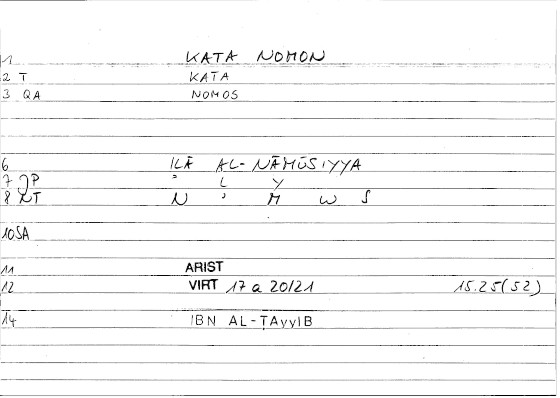 1 KATA NOMON
2 T KATA
3 QA NOMOS
6 ILĀ AL-NĀMŪSIYYA
7 P ʾ L Y
8 NT N ʾ M W S
10 SA
11 ARIST
12 VIRT 17 a 20/21 15.25(52)
14 IBN AL-ṬAyyIB